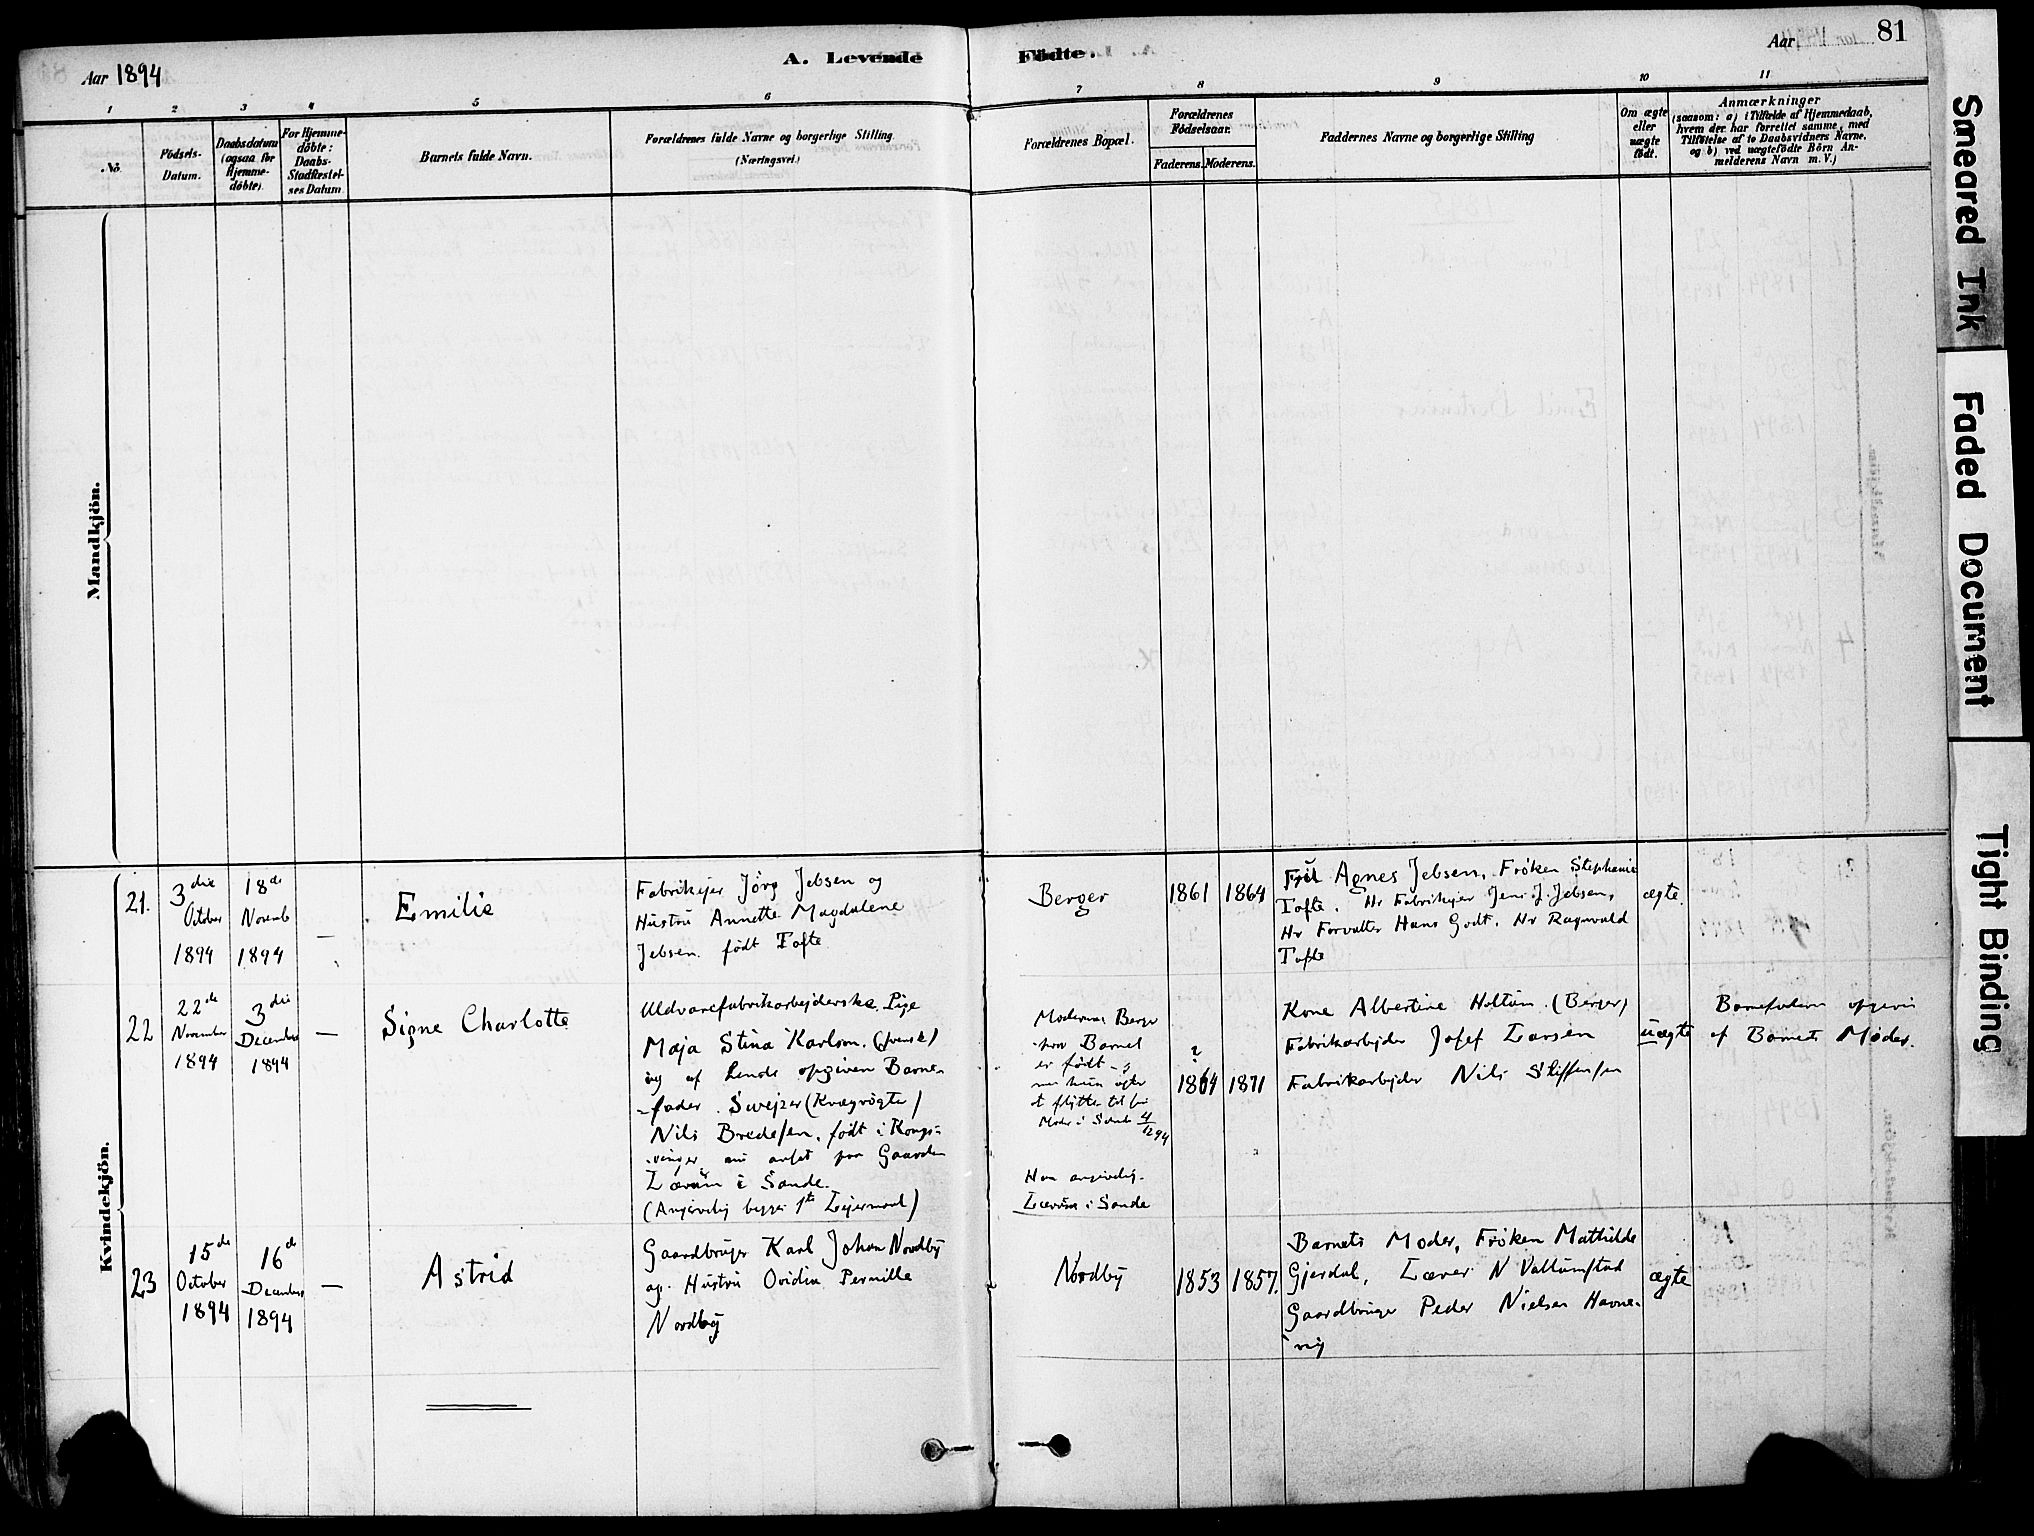 Aar 1894
A. Levende Födte.
Aar
81
1 2 3 4 5 6 7 8 9 10 11
No.
Födsels-
Datum.
Daabsdatum
(ogsaa for
Hjemme-
döbte).
For Hjemme-
döbte:
Daabs-
Stadfæstel-
ses Datum
Barnets fulde Navn.
Forældrenes fulde Navne og borgerlige Stilling.
(Næringsvei.)
Forældrenes Bopæl.
Forældrenes
Födselsaar.
Faderens. Moderens.
Faddernes Navne og borgerlige Stilling
Om ægte
eller
uægte
født.
Anmærkninger
(saasom: a) i Tilfælde af Hjemmedaab,
hvem der har forrettet samme, med
Tilföielse af to Daabsvidners Navne.
og b) ved uægtefödte Börn An-
melderens Navn m. V.)
Mandkjön.
Kvindekjön.
21.
3die
October
1894
18de
Novemb
1894
—
Emilie
Fabrikejer Jörg Jebsen og
Hustru Annette Magdalene
Jebsen. født Tofte
Berger
1861 1864
Agnes Jebsen, Frøken Stephanie
Tofte. Hr Fabrikejer Jens J. Jebsen,
Hr Forvalter Hans Godt. Hr Ragnvald
Tofte
ægte.
22
22de
November
1894
3die
December
1894
—
Signe Charlotte
Uldvarefabrikarbejderske, Pige
Maja Stina Karlson. (svensk)
og af hende opgiven Barne-
-fader. Swejzer (Kvægrögter)
Nils Bredesen, født i Kongs-
-vinger nu ansat paa Gaarden
i Sande.
(Angivelig begges 1ste Lejermaal)
Moderens Berger
hvor Barnet
er født
Moder i Sande 4/12 94
Han angivelig.
i Sande
?
1864 1871
Kone Albertine Holtun. (Berger)
Fabrikarbejder Josef Larsen
Fabrikarbejder Nils Steffensen
uægte
Barnefaderen opgiven
af Barnets Moder.
23
15de
October
1894
16de
December
1894
—
Astrid
Gaardbruger Karl Johan Nordby
og Hustru Ovidia Pernille
Nordby
Nordby
1853 1857.
Barnets Moder, Frøken Mathilde
Gjerdal, Lærer N Vallumstad
Gaardbruger Peder Nielsen Havne-
vig
ægte
Smeared Ink
Faded Document
Tight Binding